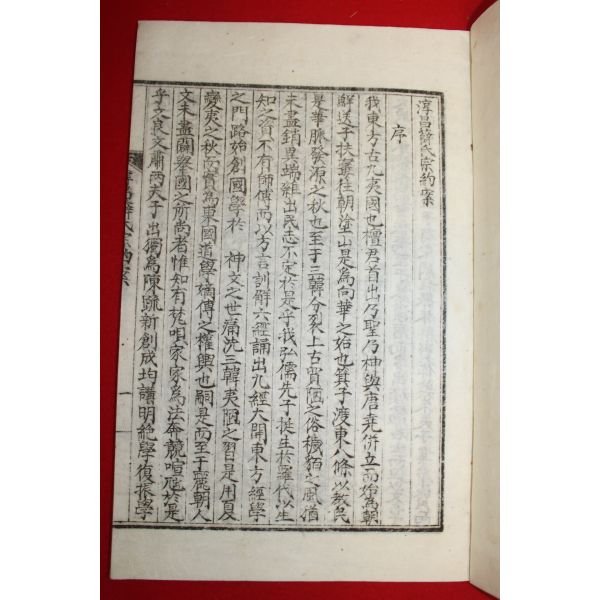 淳昌薛氏宗約案
序
我東方古九夷國也檀君首出乃聖乃神與唐堯併立而始爲朝
鮮送子扶婁往朝塗山是爲向華之始也箕子渡東八條以敎民
是華脈發源之秋也至于三韓分裂上古貿陋之俗穢貊之風猶
未盡銷異端雜出民志不定於是乎我弘儒先子挺生於羅代以生
知之資不有師傅而以方言訓解六經誦出九經大開東方經學
之門路始創國學於 神文之世痛洗三韓夷陋之習是用夏
變夷之秋而實爲東國道學嫡傳之權輿也嗣是而至于麗朝人
文未盡闢擧國之所尚者惟知有梵唄家家爲法奔競喧於是
乎文良文肅兩夫子出獨爲陳疏新創成均講明絶學復振學
淳昌薛氏宗約案 一